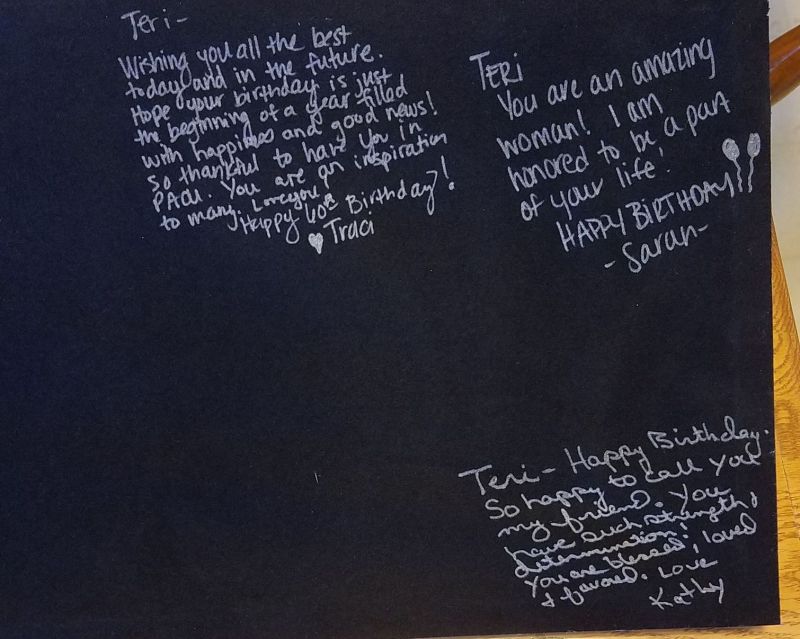 Teri-
Wishing you all the best
today and in the future.
Hope your birthday is just
the beginning of a year filled
with happiness and good news!
So thankful to have you in
PACU. You are an inspiration
to many. Love you
Happy 60th Birthday!
Traci
TERI
You are an amazing
woman! I am
honored to be a part
of your life!
HAPPY BIRTHDAY
-Sarah-
Teri- Happy Birthday.
So happy to call you
my friend. You
have such strength &
determination!
You are blessed, loved
& favored. Love
Kathy